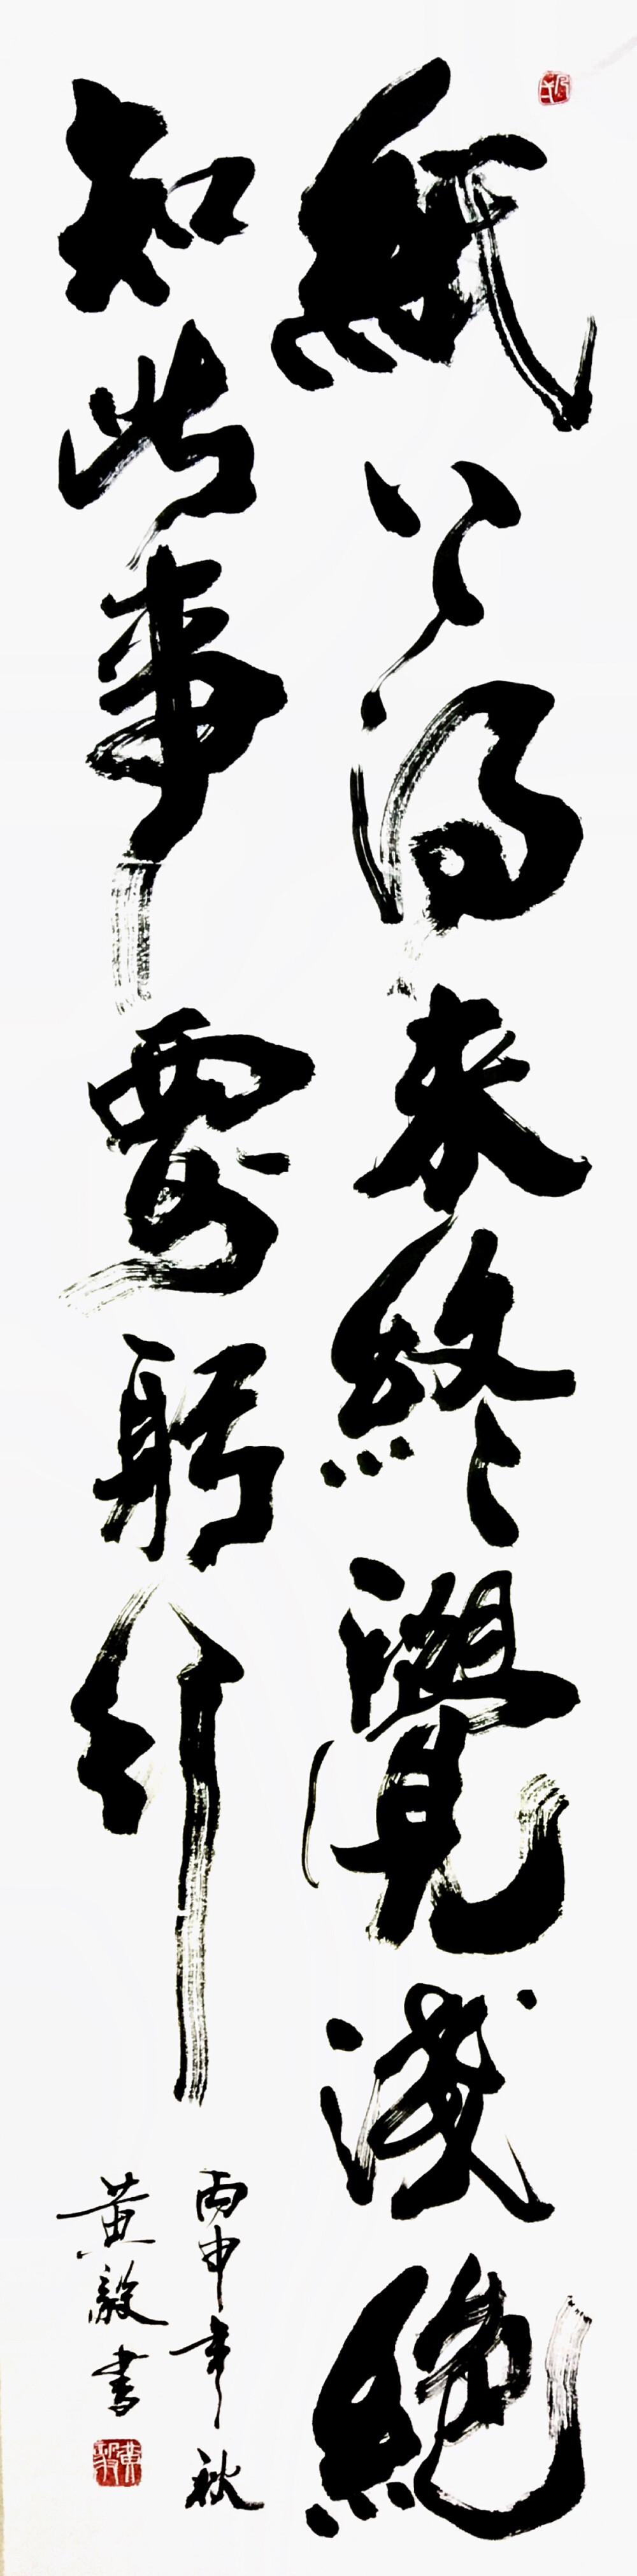 紙上得来終覺淺絶
知此事要躬行
丙申年秋
黄毅書